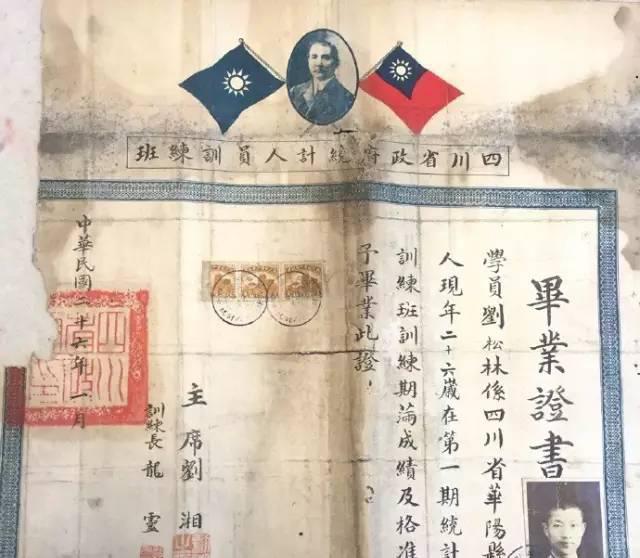 四川省政府統計人員訓練班
畢業證書
學員劉松林係四川省華陽縣
人現年二十六歲在第一期統計
訓練班訓練期滿成績及格准
予畢業此證
主席劉湘
訓練長龍靈
中華民國二十六年一月